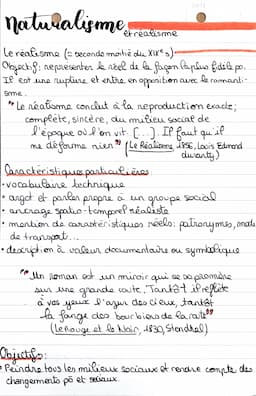 Naturalisme
et réalisme
Le réalisme (= seconde moitié du XIXe s)
Objectif: représenter le réel de la façon la plus fidèle po.
Il est une rupture et entre en opposition avec le romanti-
sme.
"Le réalisme conclut à la reproduction exacte,
complète, sincère, du milieu social de
l'époque où l'on vit [...]. Il faut qu'il
ne déforme rien" (Le Réalisme, 1856, Louis Edmond
Duranty)
Caractéristiques particulières
• vocabulaire technique
• argot et parler propre à un groupe social
• ancrage spatio-temporel réaliste
• mention de caractéristiques réels: patronymes, mode
de transport...
• description à valeur documentaire ou symbolique
"Un roman est un miroir qui se promène
sur une grande route. Tantôt il reflète
à vos yeux l'azur des cieux, tantôt
la fange des bourbiers de la route"
(Le rouge et le Noir, 1830, Stendhal)
Objectifs:
• Peindre tous les milieux sociaux et rendre compte des
changements po et sociaux